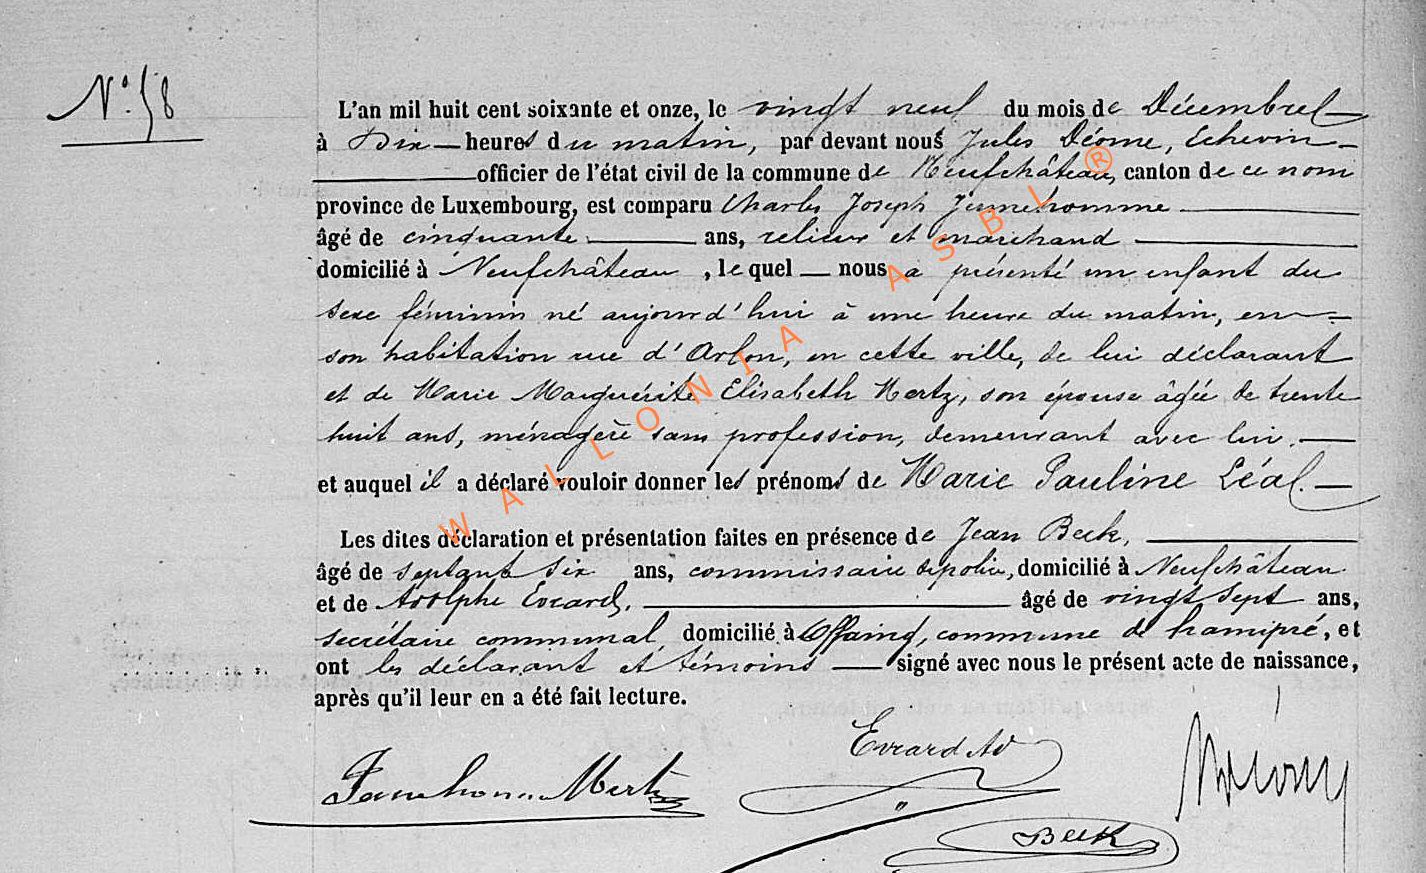 N° 58
L'an mil huit cent soixante et onze, le vingt neuf du mois de Décembre
à Dix heures du matin, par devant nous Jules Déome, Echevin
officier de l'état civil de la commune de Neufchâteau, canton de ce nom
province de Luxembourg, est comparu Charles Joseph Jumehomme
âgé de cinquante ans, relieur et marchand
domicilié à Neufchâteau, lequel nous a présenté un enfant du
sexe féminin né aujourd'hui à une heure du matin, en
son habitation rue d'Arlon, en cette ville, de lui déclarant
et de Marie Marguérite Elisabeth Mertz, son épouse âgée de trente
huit ans, ménagère sans profession, demeurant avec lui.
et auquel il a déclaré vouloir donner les prénoms de Marie Pauline Léal.
Les dites déclaration et présentation faites en présence de Jean Beck,
âgé de septante six ans, commissaire de police, domicilié à Neufchâteau
et de Adolphe Evrard, âgé de vingt sept ans,
secrétaire communal, domicilié à Offaing, commune de hamipré, et
ont les déclarant et témoins signé avec nous le présent acte de naissance,
après qu'il leur en a été fait lecture.
Evrard Ad
Mertz
Beck
WALLONIA ASBL ®